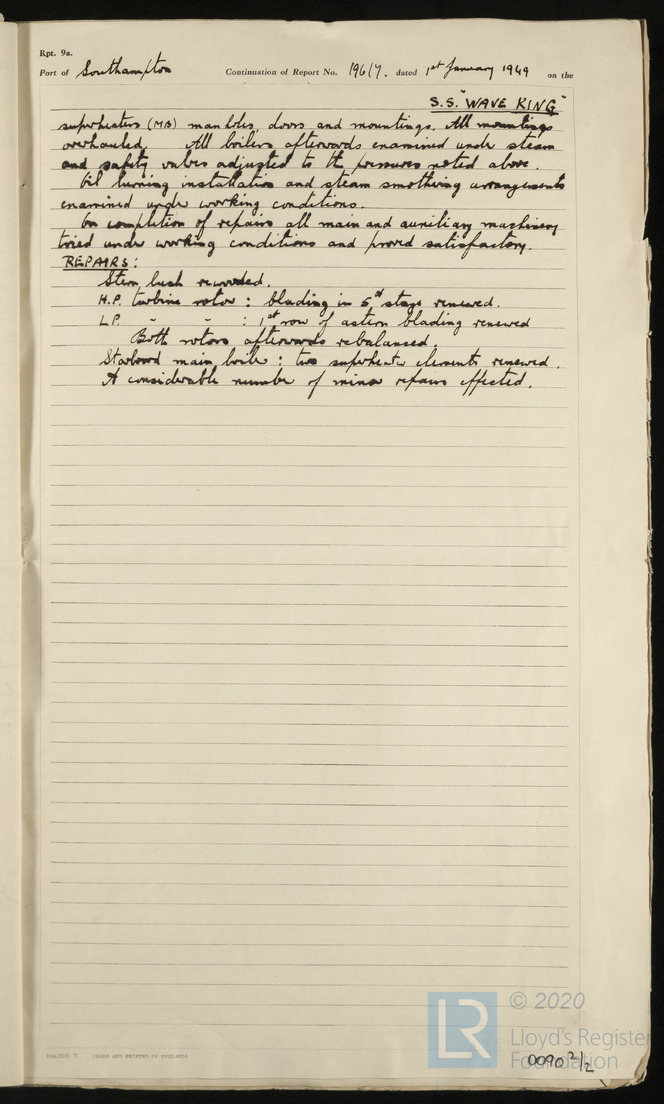 Rpt. 9a.
Port of Southampton Continuation of Report No. 19617. dated 1st January 1949 on the
S.S. "WAVE KING"
superheaters (MB) manholes, doors and mountings. All mountings
overhauled. All boilers afterwards examined under steam
and safety valves adjusted to the pressures noted above.
Oil burning installation and steam smothering arrangements
examined under working conditions.
On completion of repairs all main and auxiliary machinery
tried under working conditions and proved satisfactory.
REPAIRS:
Stern bush rewooded.
H.P. turbine rotor : blading in 5th stage renewed.
L.P. " " : 1st row of astern blading renewed
Both rotors afterwards rebalanced.
Starboard main boiler : two superheater elements renewed.
A considerable number of minor repairs effected.
(MADE AND PRINTED IN ENGLAND)
LR © 2020
Lloyd's Register
Foundation
0090 2/2